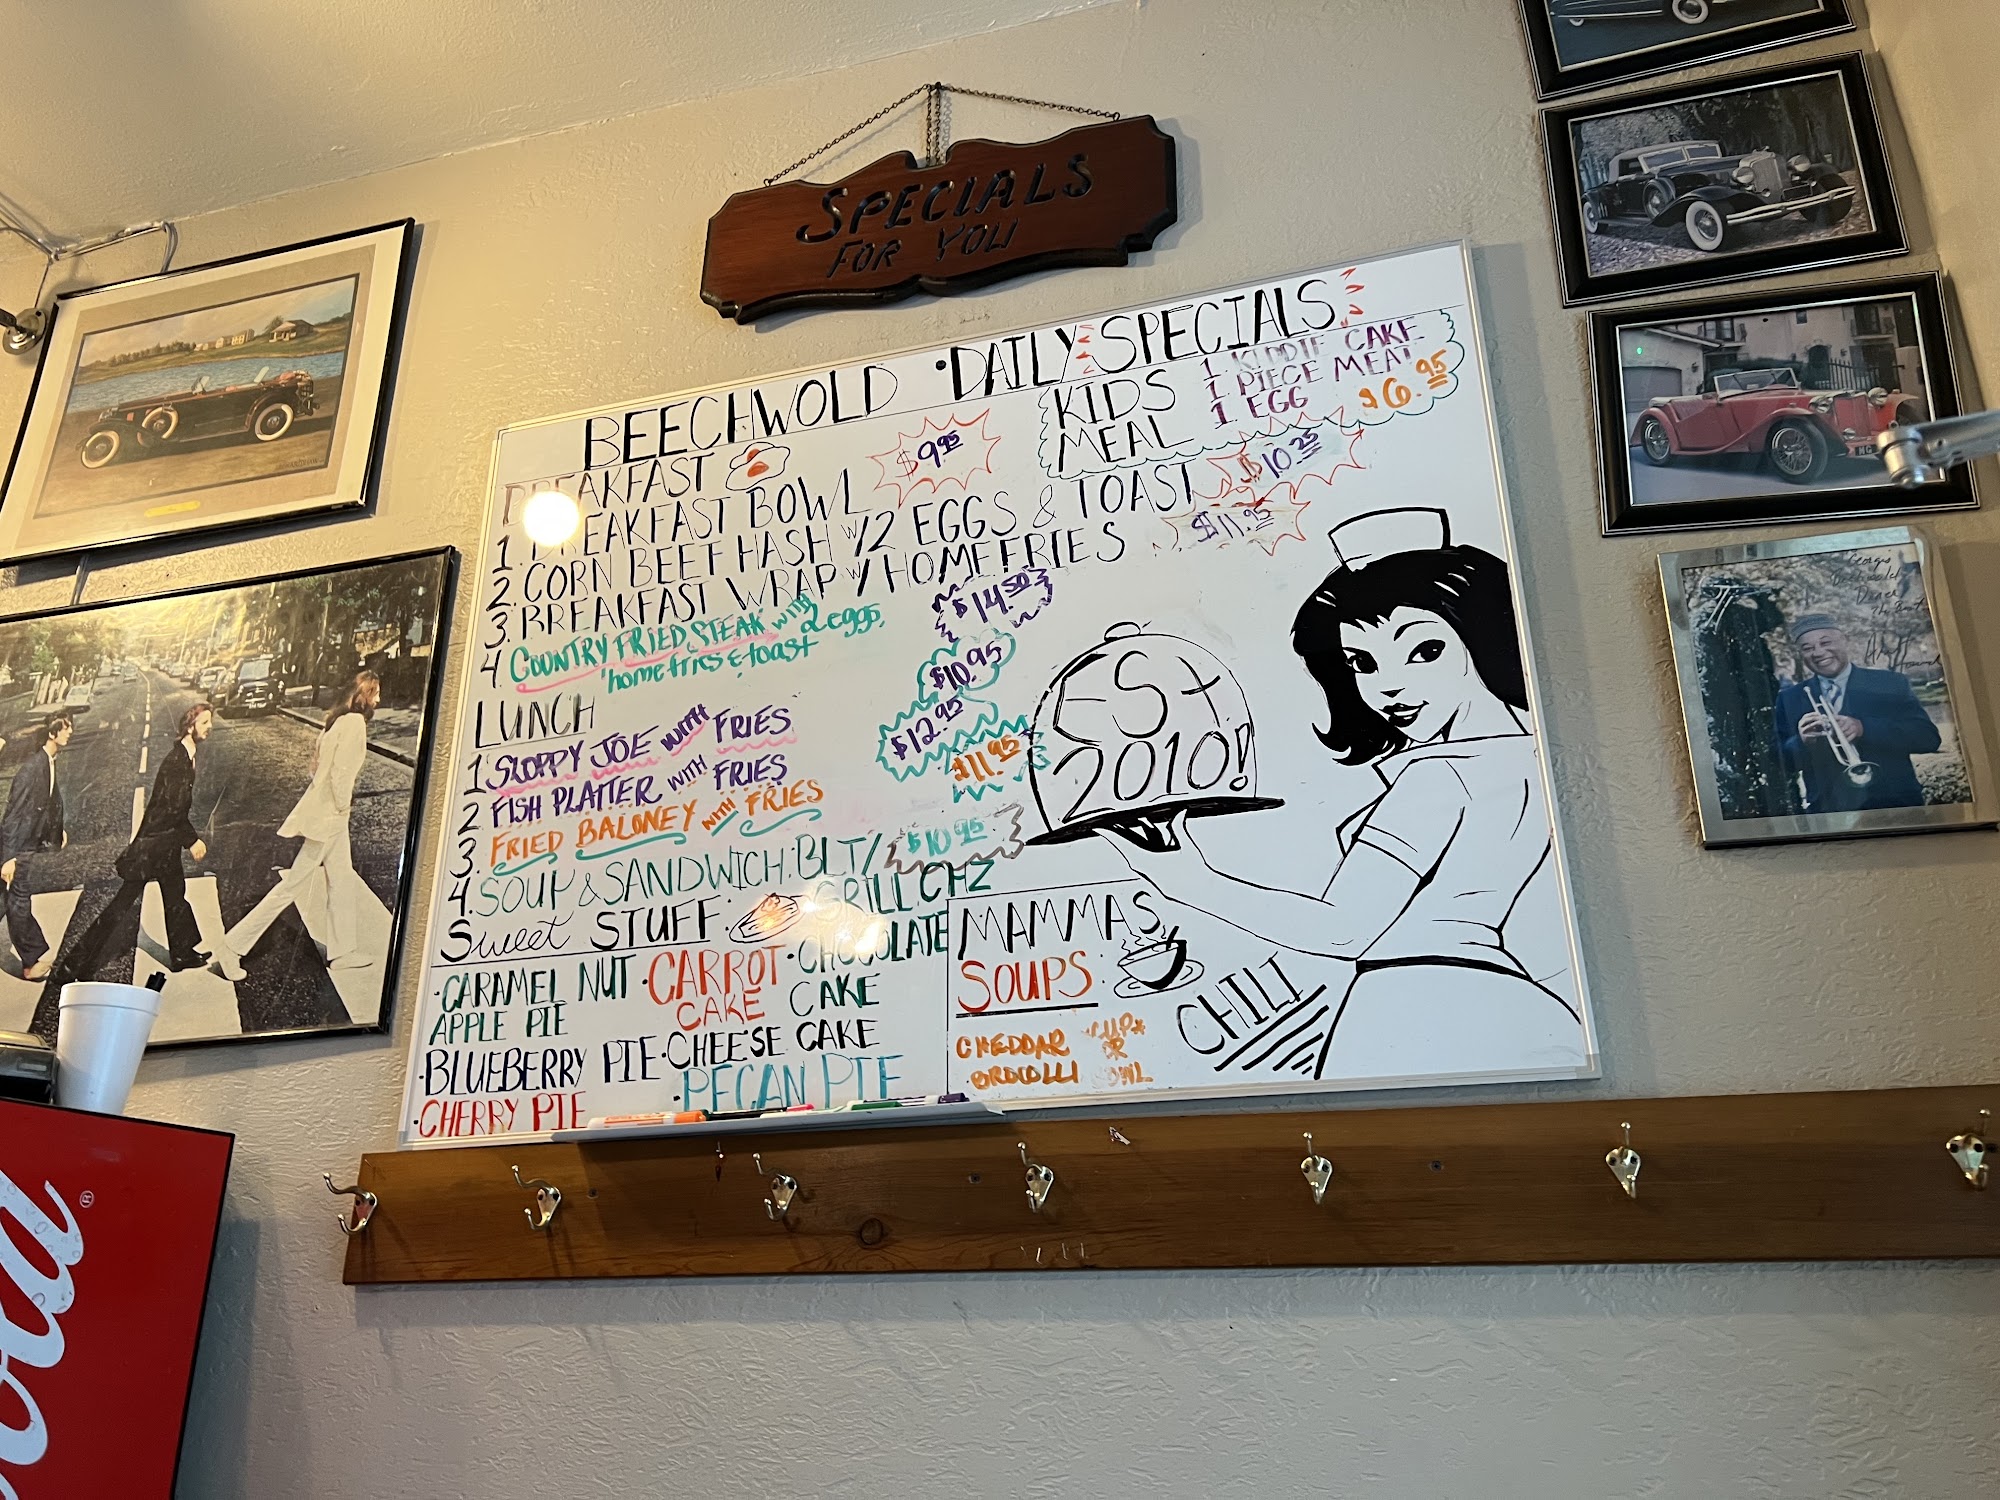 SPECIALS
FOR YOU
BEECHWOLD • DAILY SPECIALS
BREAKFAST
1. BREAKFAST BOWL $9.95
2. CORN BEEF HASH W/2 EGGS & TOAST $10.25
3. BREAKFAST WRAP W/ HOMEFRIES $11.95
4. COUNTRY FRIED STEAK with 2 eggs, $14.50
home fries & toast
KIDS
MEAL
1. KIDDIE CAKE
1. PIECE MEAT
1. EGG $6.95
LUNCH
1 SLOPPY JOE WITH FRIES $10.95
2 FISH PLATTER WITH FRIES $12.95
3. FRIED BALONEY WITH FRIES $11.95
4. SOUP & SANDWICH: BLT/ $10.95
GRILL CHZ
Sweet STUFF:
• CARAMEL NUT
APPLE PIE
• BLUEBERRY PIE
• CHERRY PIE
• CARROT
CAKE
• CHEESE CAKE
• PECAN PIE
• CHOCOLATE
CAKE
MAMMAS
SOUPS:
CHEDDAR
BROCOLLI
CUP
OR
BOWL
CHILI
EST
2010!
MG
Beechwold
®